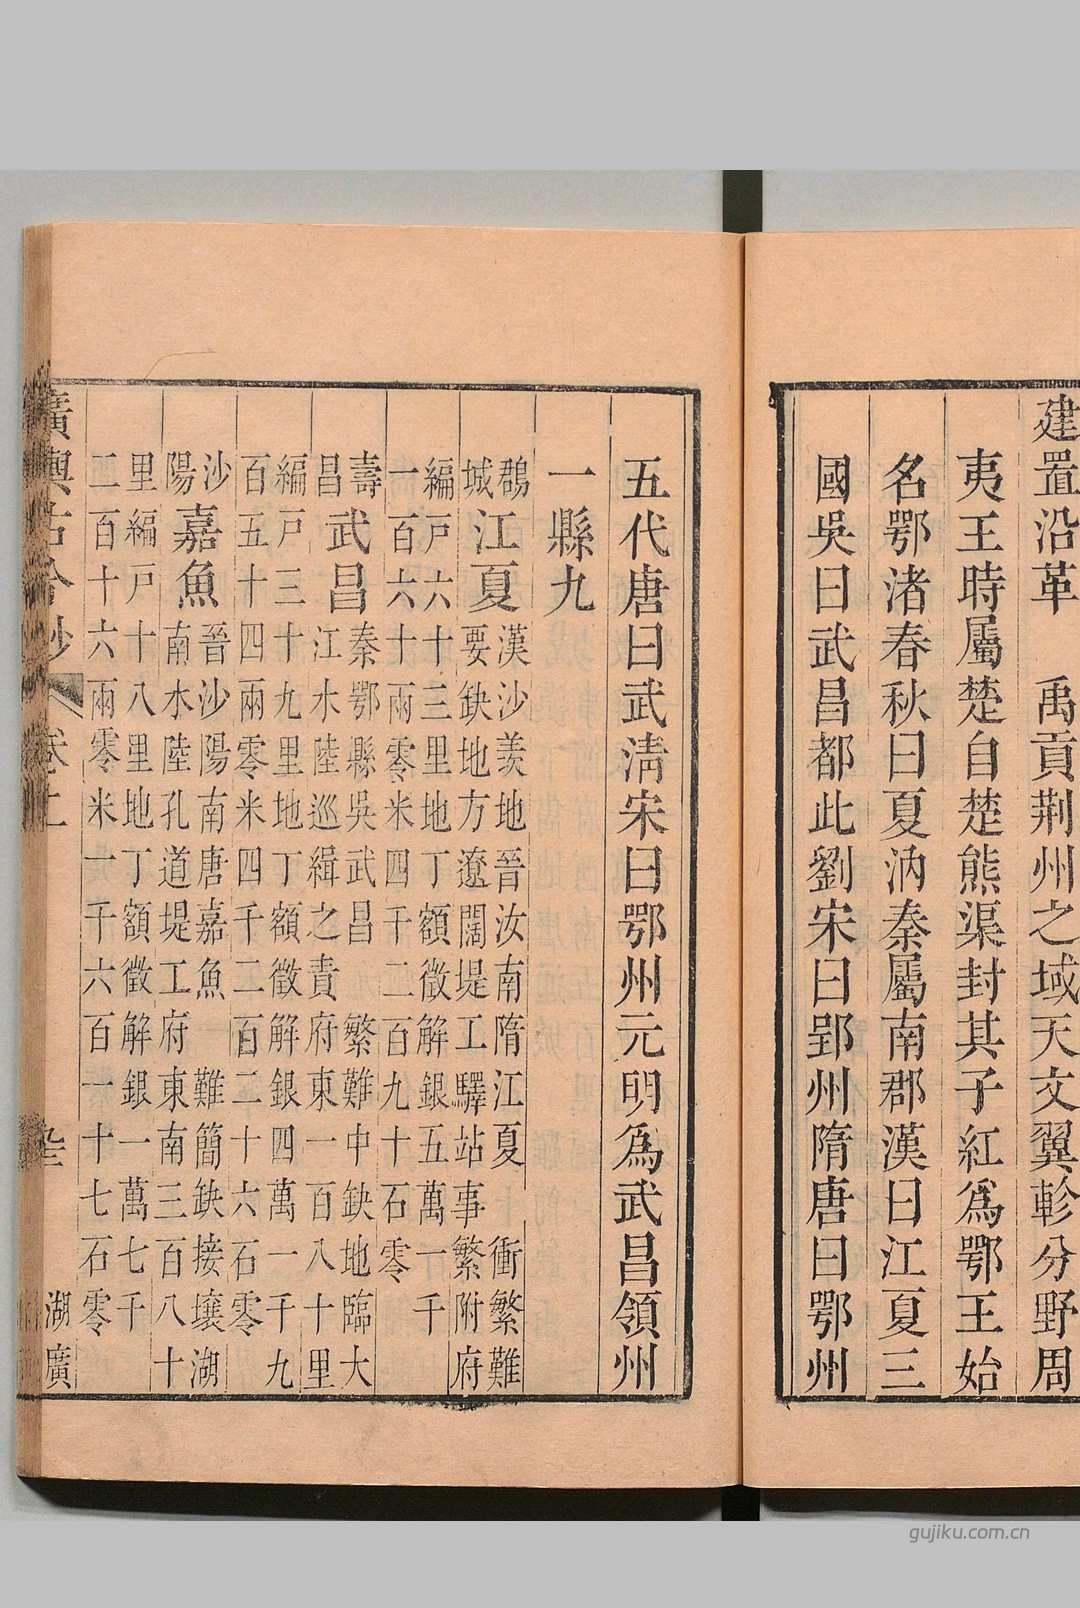 建置沿革　禹貢荆州之域天文翼軫分野周
夷王時屬楚自楚熊渠封其子紅為鄂王始
名鄂渚春秋曰夏汭秦屬南郡漢曰江夏三
國吳曰武昌都此劉宋曰郢州隋唐曰鄂州
五代唐曰武淸宋曰鄂州元明為武昌領州
一縣九
鵠
城
江夏
漢沙羡地晉汝南隋江夏　衝繁難
要缺地方遼闊堤工驛站事繁附府
編戶六十三里地丁額徵解銀五萬一千
一百六十兩零米四千二百九十石零
壽
昌
武昌
秦鄂縣吳武昌　繁難中缺地臨大
江水陸巡緝之責府東一百八十里
編戶三十九里地丁額徵解銀四萬一千九
百五十四兩零米四千二百二十六石零
沙
陽
嘉魚
晉沙陽南唐嘉魚　難簡缺接壤湖
南水陸孔道堤工府東南三百八十
里編戶十八里地丁額徵解銀一萬七千
二百十六兩零米一千六百一十七石零
廣輿古今鈔　卷上　湖廣
gujiku.com.cn